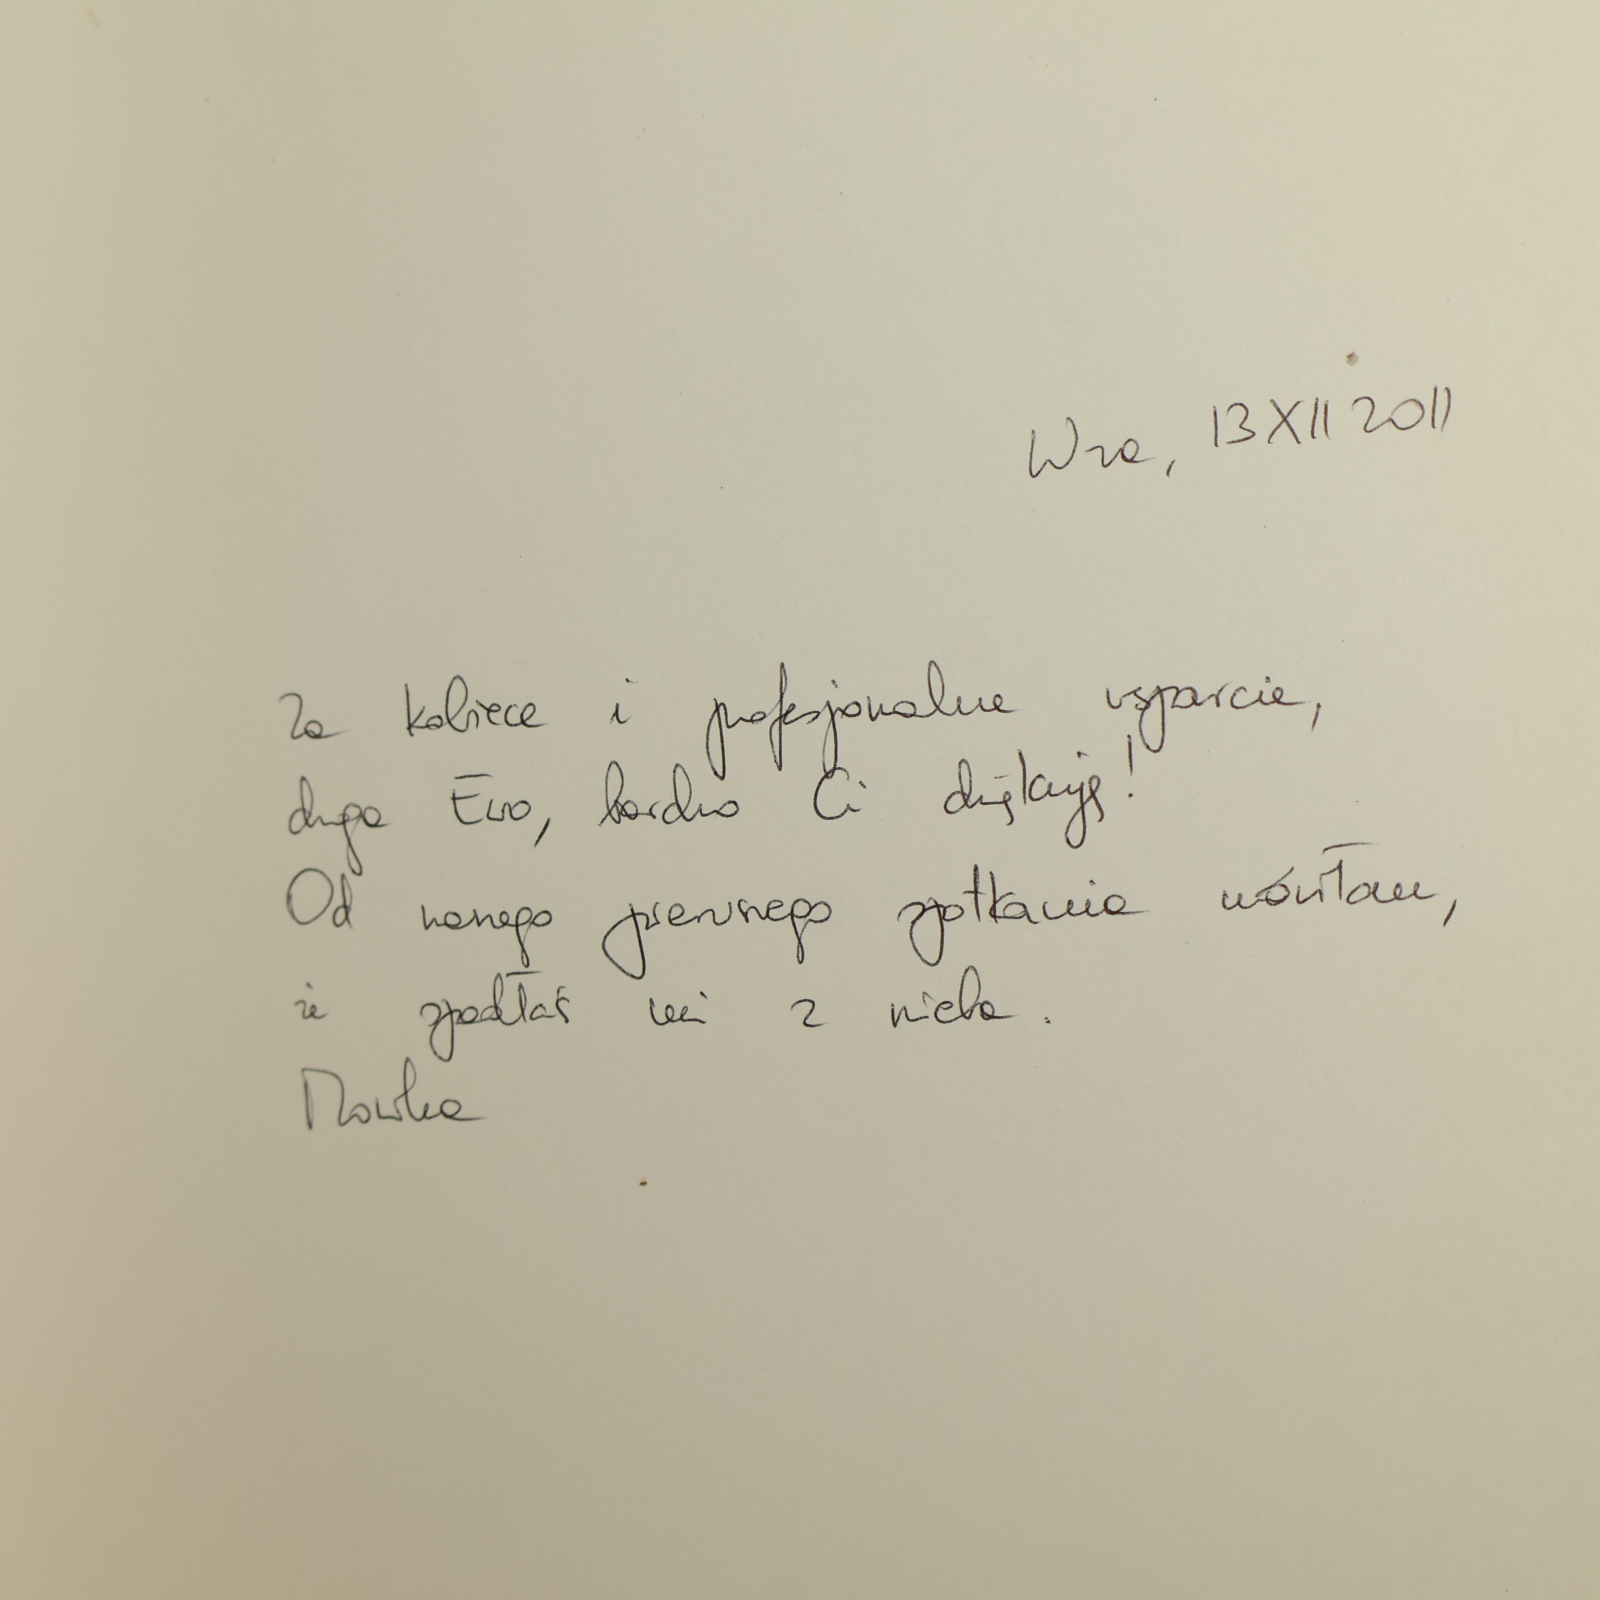 Wwa, 13 XII 2011
Za kobiece i profesjonalne wsparcie,
droga Ewo, bardzo Ci dziękuję!
Od naszego pierwszego spotkania mówiłam,
że spadłaś mi z nieba.